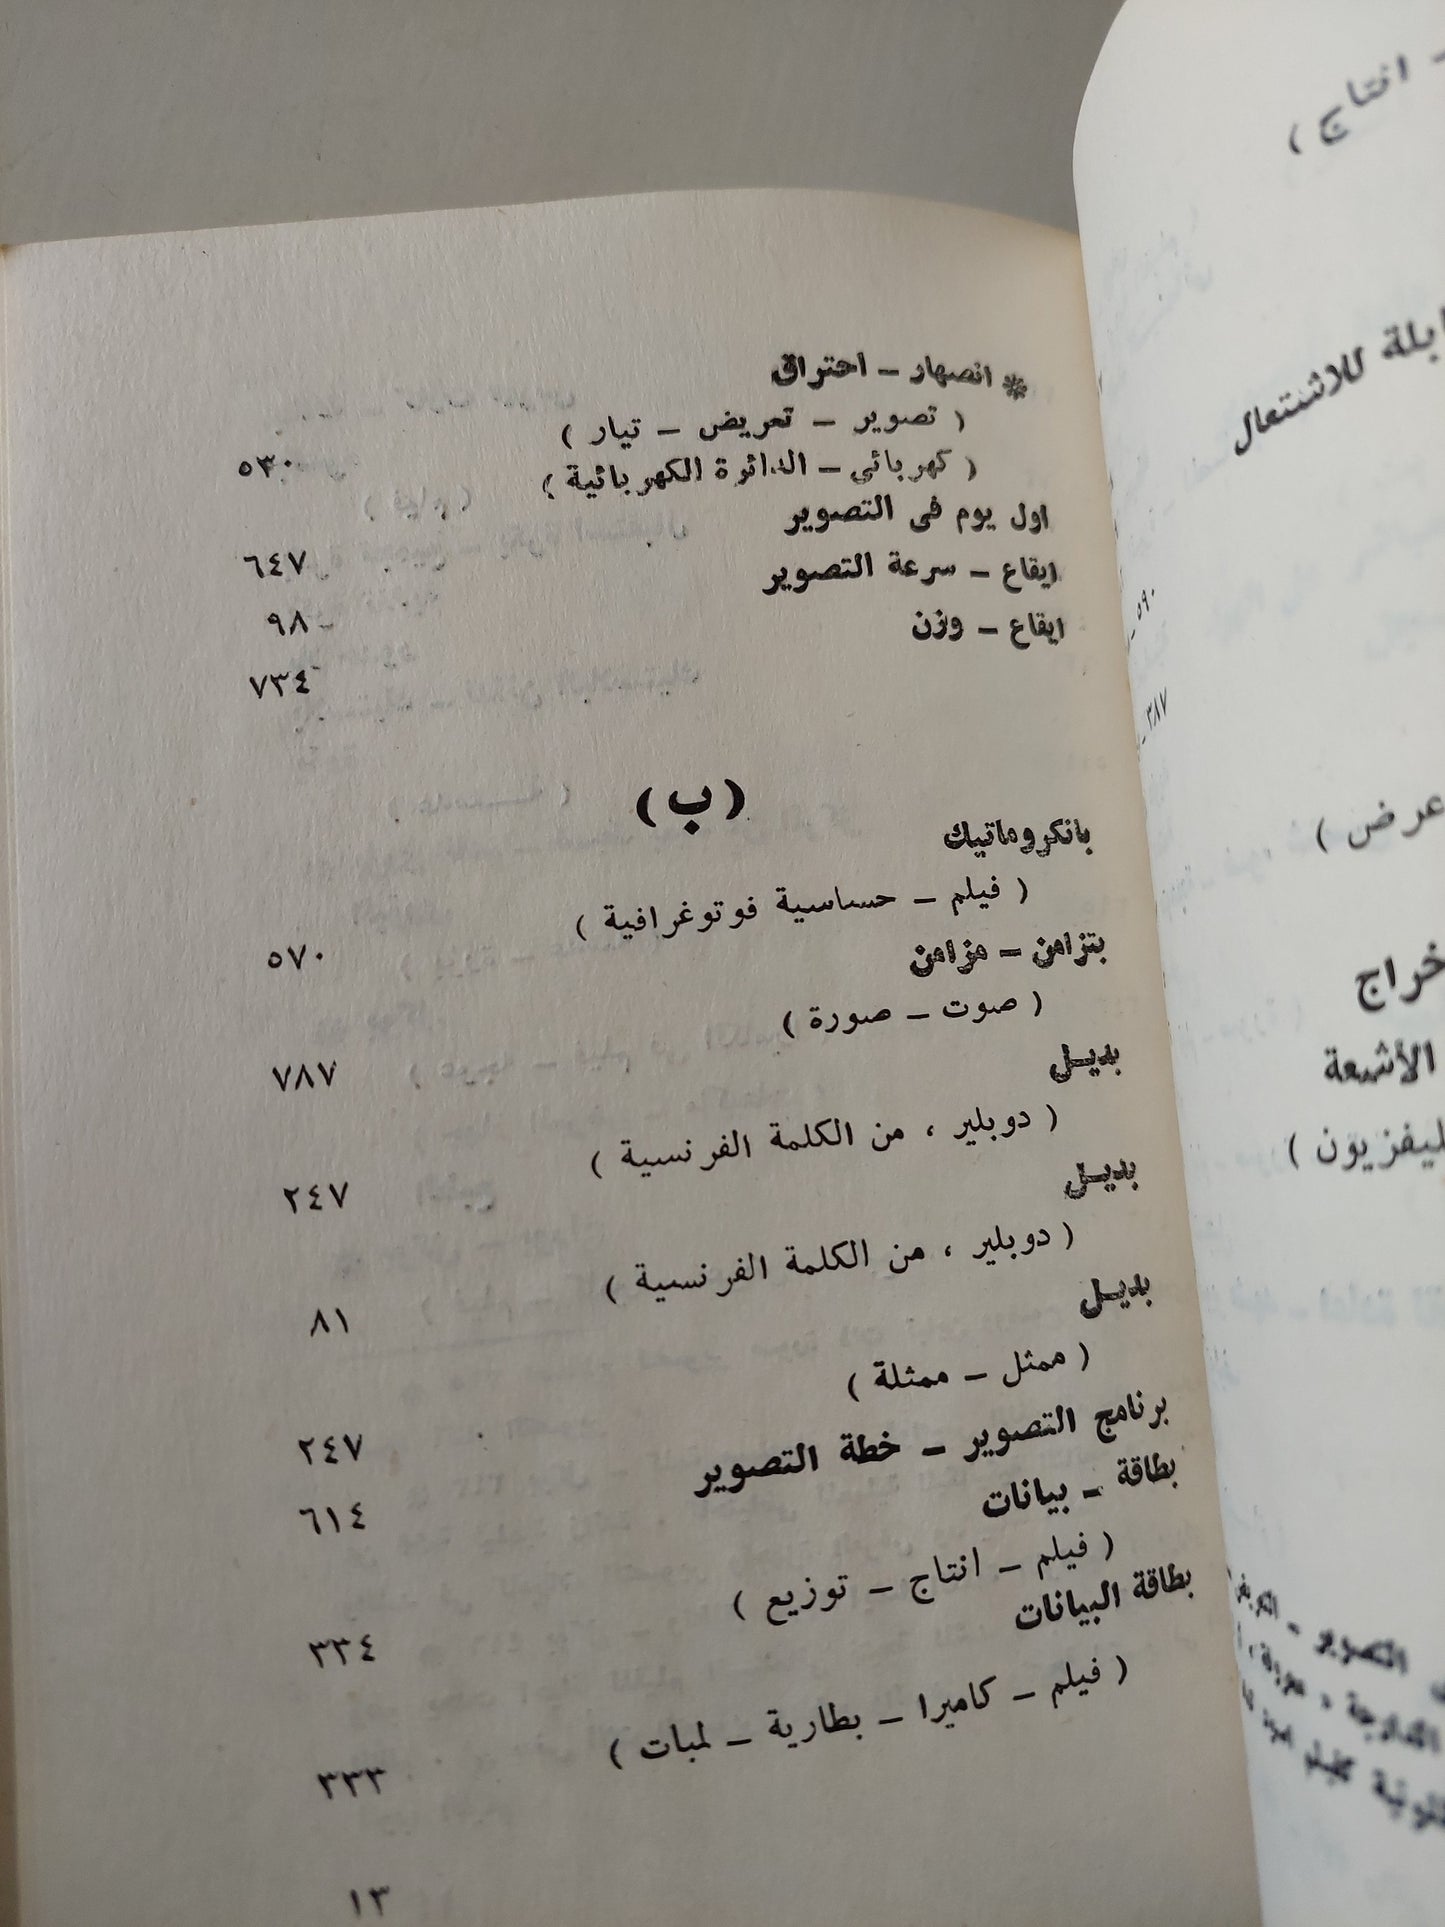 * انصهار – احتراق
( تصوير – تعريض – تيار )
( كهربائى – الدائرة الكهربائية ) ٥٣٠
اول يوم فى التصوير ٦٤٧
ايقاع – سرعة التصوير ٩٨
ايقاع – وزن ٧٣٤
(ب)
بانكروماتيك
( فيلم – حساسية فوتوغرافية ) ٥٧٠
بتزامن – مزامن
( صوت – صورة ) ٧٨٧
بديـل
( دوبلير ، من الكلمة الفرنسية ) ٢٤٧
بديـل
( دوبلير ، من الكلمة الفرنسية ) ٨١
بديـل
( ممثل – ممثلة ) ٢٤٧
برنامج التصوير – خطة التصوير ٦١٤
بطاقة – بيانات
( فيلم – انتاج – توزيع ) ٣٣٤
بطاقة البيانات
( فيلم – كاميرا – بطارية – لمبات ) ٣٣٣
١٣
للاشتعال
٥٩٠
٣٨٧
عرض )
الأشعة